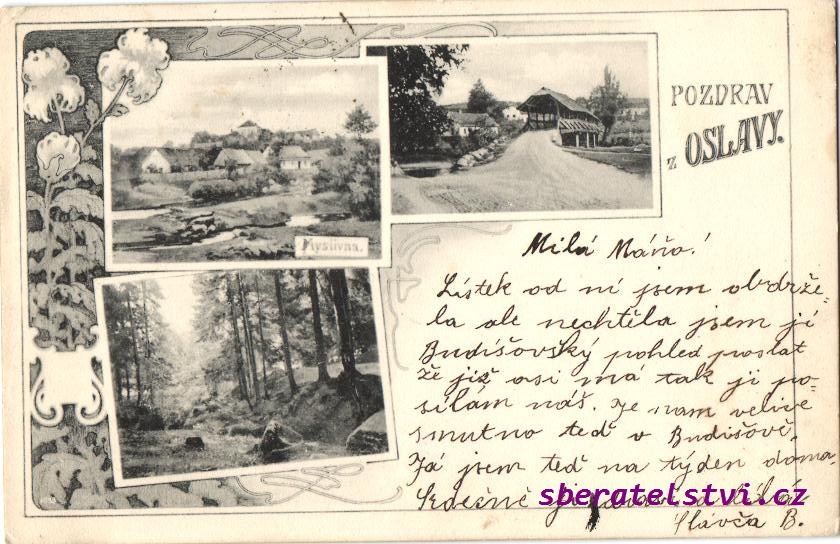 POZDRAV
z OSLAVY.
Myslivna.
Milá Máňo!
Lístek od ní jsem obdrže-
la ale nechtěla jsem jí
Budišovský pohled poslat
že již asi má tak ji po-
sílám náš. Je nam velive
smutno teď v Budišově.
Já jsem teď na týden doma.
Srdečně
sberatelstvi.cz
Slávča B.